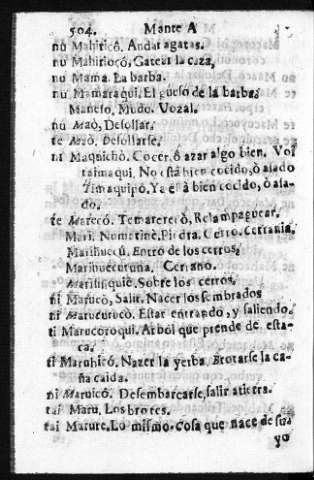 504. Mante A
nu Mahiricó. Andar agatas.
nu Mahirioçó, Gatear la caza,
nu Mama. La barba.
nu Mamaraqui. El gueso de la barba,
Maneso, Mudo. Vozal.
nu Desollar.
te Desollarse.
ni Maquichò. Cocer, ò azar algo bien. Voi
taimaqui. No està bien cocido, ò asado
Timaquipò, Ya està bien cocido, ò asa-
do.
te Marecó. Tematereco, Relampaguear.
Mari. Piedra. Cerro. Cerrania,
Marihuecù. Entro de los cerros,
Marihuecuruna. Cerrano.
Marisinquie. Sobre los cerros.
ni Marucò, Salir. Nacer los sembrados
ni Marucurucò. Estar entrando, y saliendo.
ti Marucoroqui. Arbol que prende de esta-
ca.
ti Maruhicó. Nazer la yerba. Brotarse la ca-
ña caida.
ni Maruicó. Desembarcarse, salir atierra.
tai Maru. Los brotes.
tai Marure. Lo mismo. Cosa que nace de su
yo